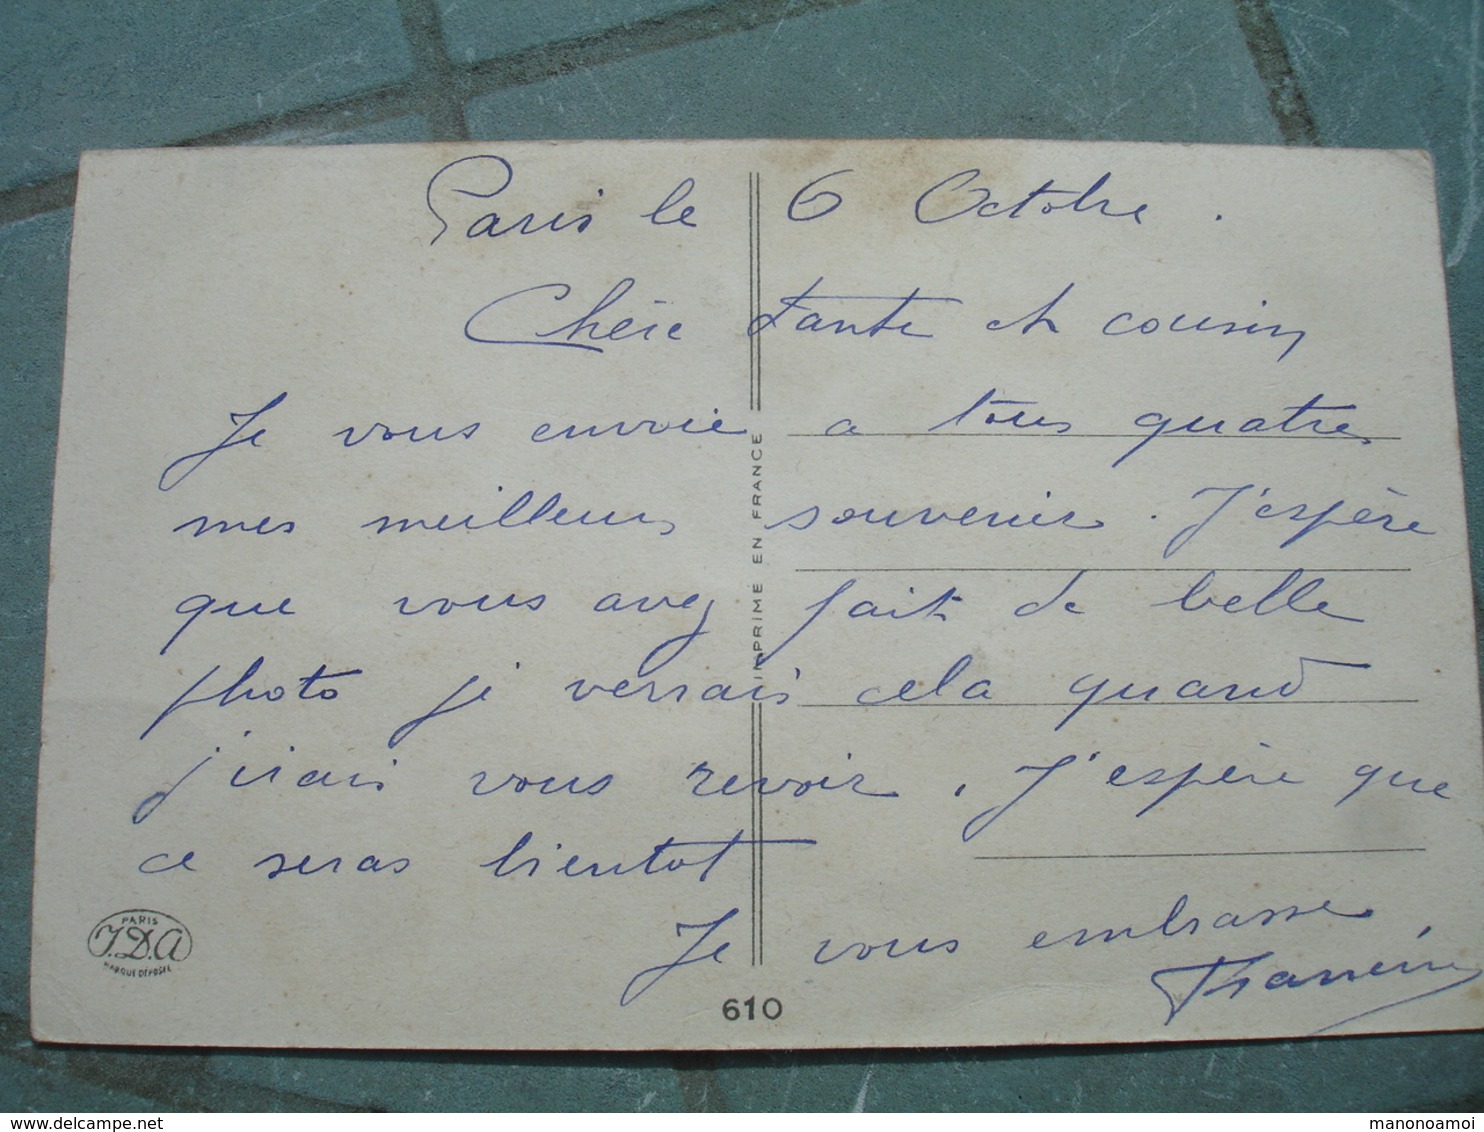 Paris le 6 Octobre.
Chère tante et cousin
Je vous envoie a tous quatre
mes meilleurs souvenirs. J'espère
que vous avez fait de belle
photo je verrais cela quand
j'irais vous revoir. J'espère que
ce seras bientot
Je vous embrasse
IMPRIME EN FRANCE
PARIS
J.D.A
MARQUE DÉPOSÉE
610
www.delcampe.net
manonoamoi